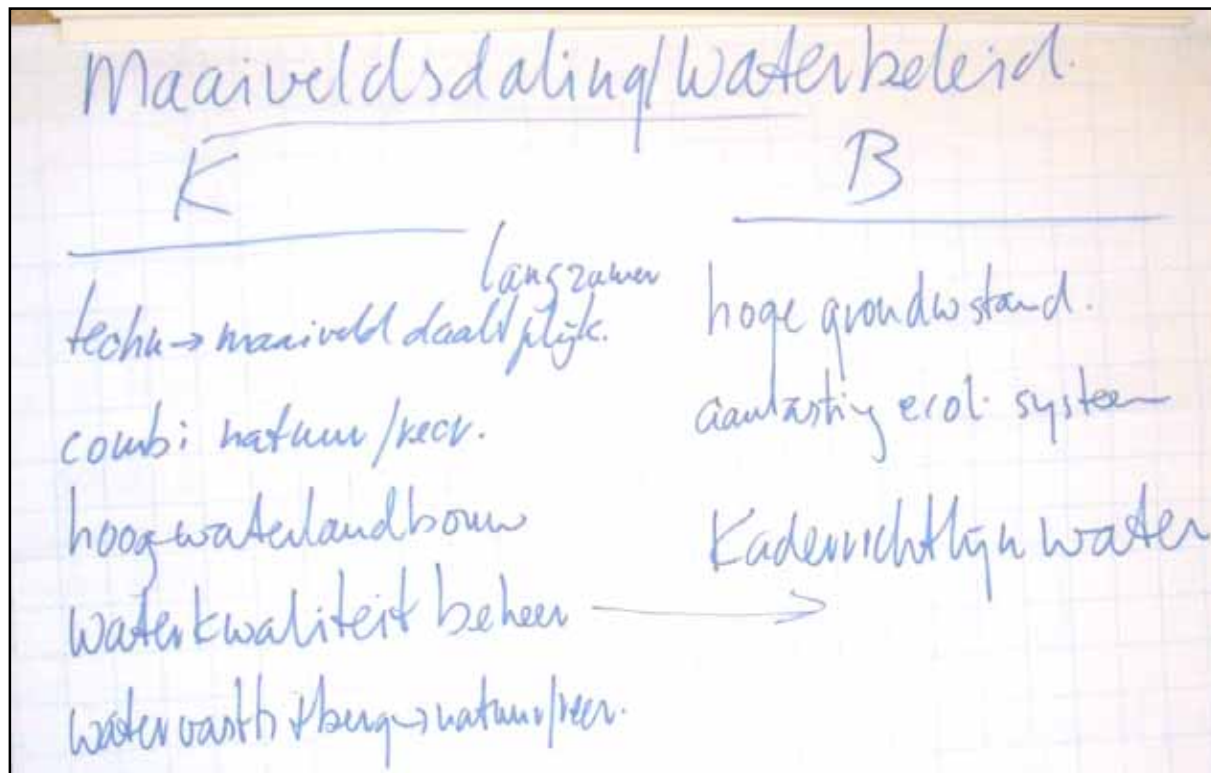 Maaiveldsdaling/waterbeleid.
K
B
langzamer
techn → maaiveld daalt plijk.
combi natuur/recr.
hoogwaterlandbouw
waterkwaliteit beheer →
watervasth + berg → natuur/recr.
hoge grondwstand.
aantasting ecol. systeem
Kaderrichtlijn water